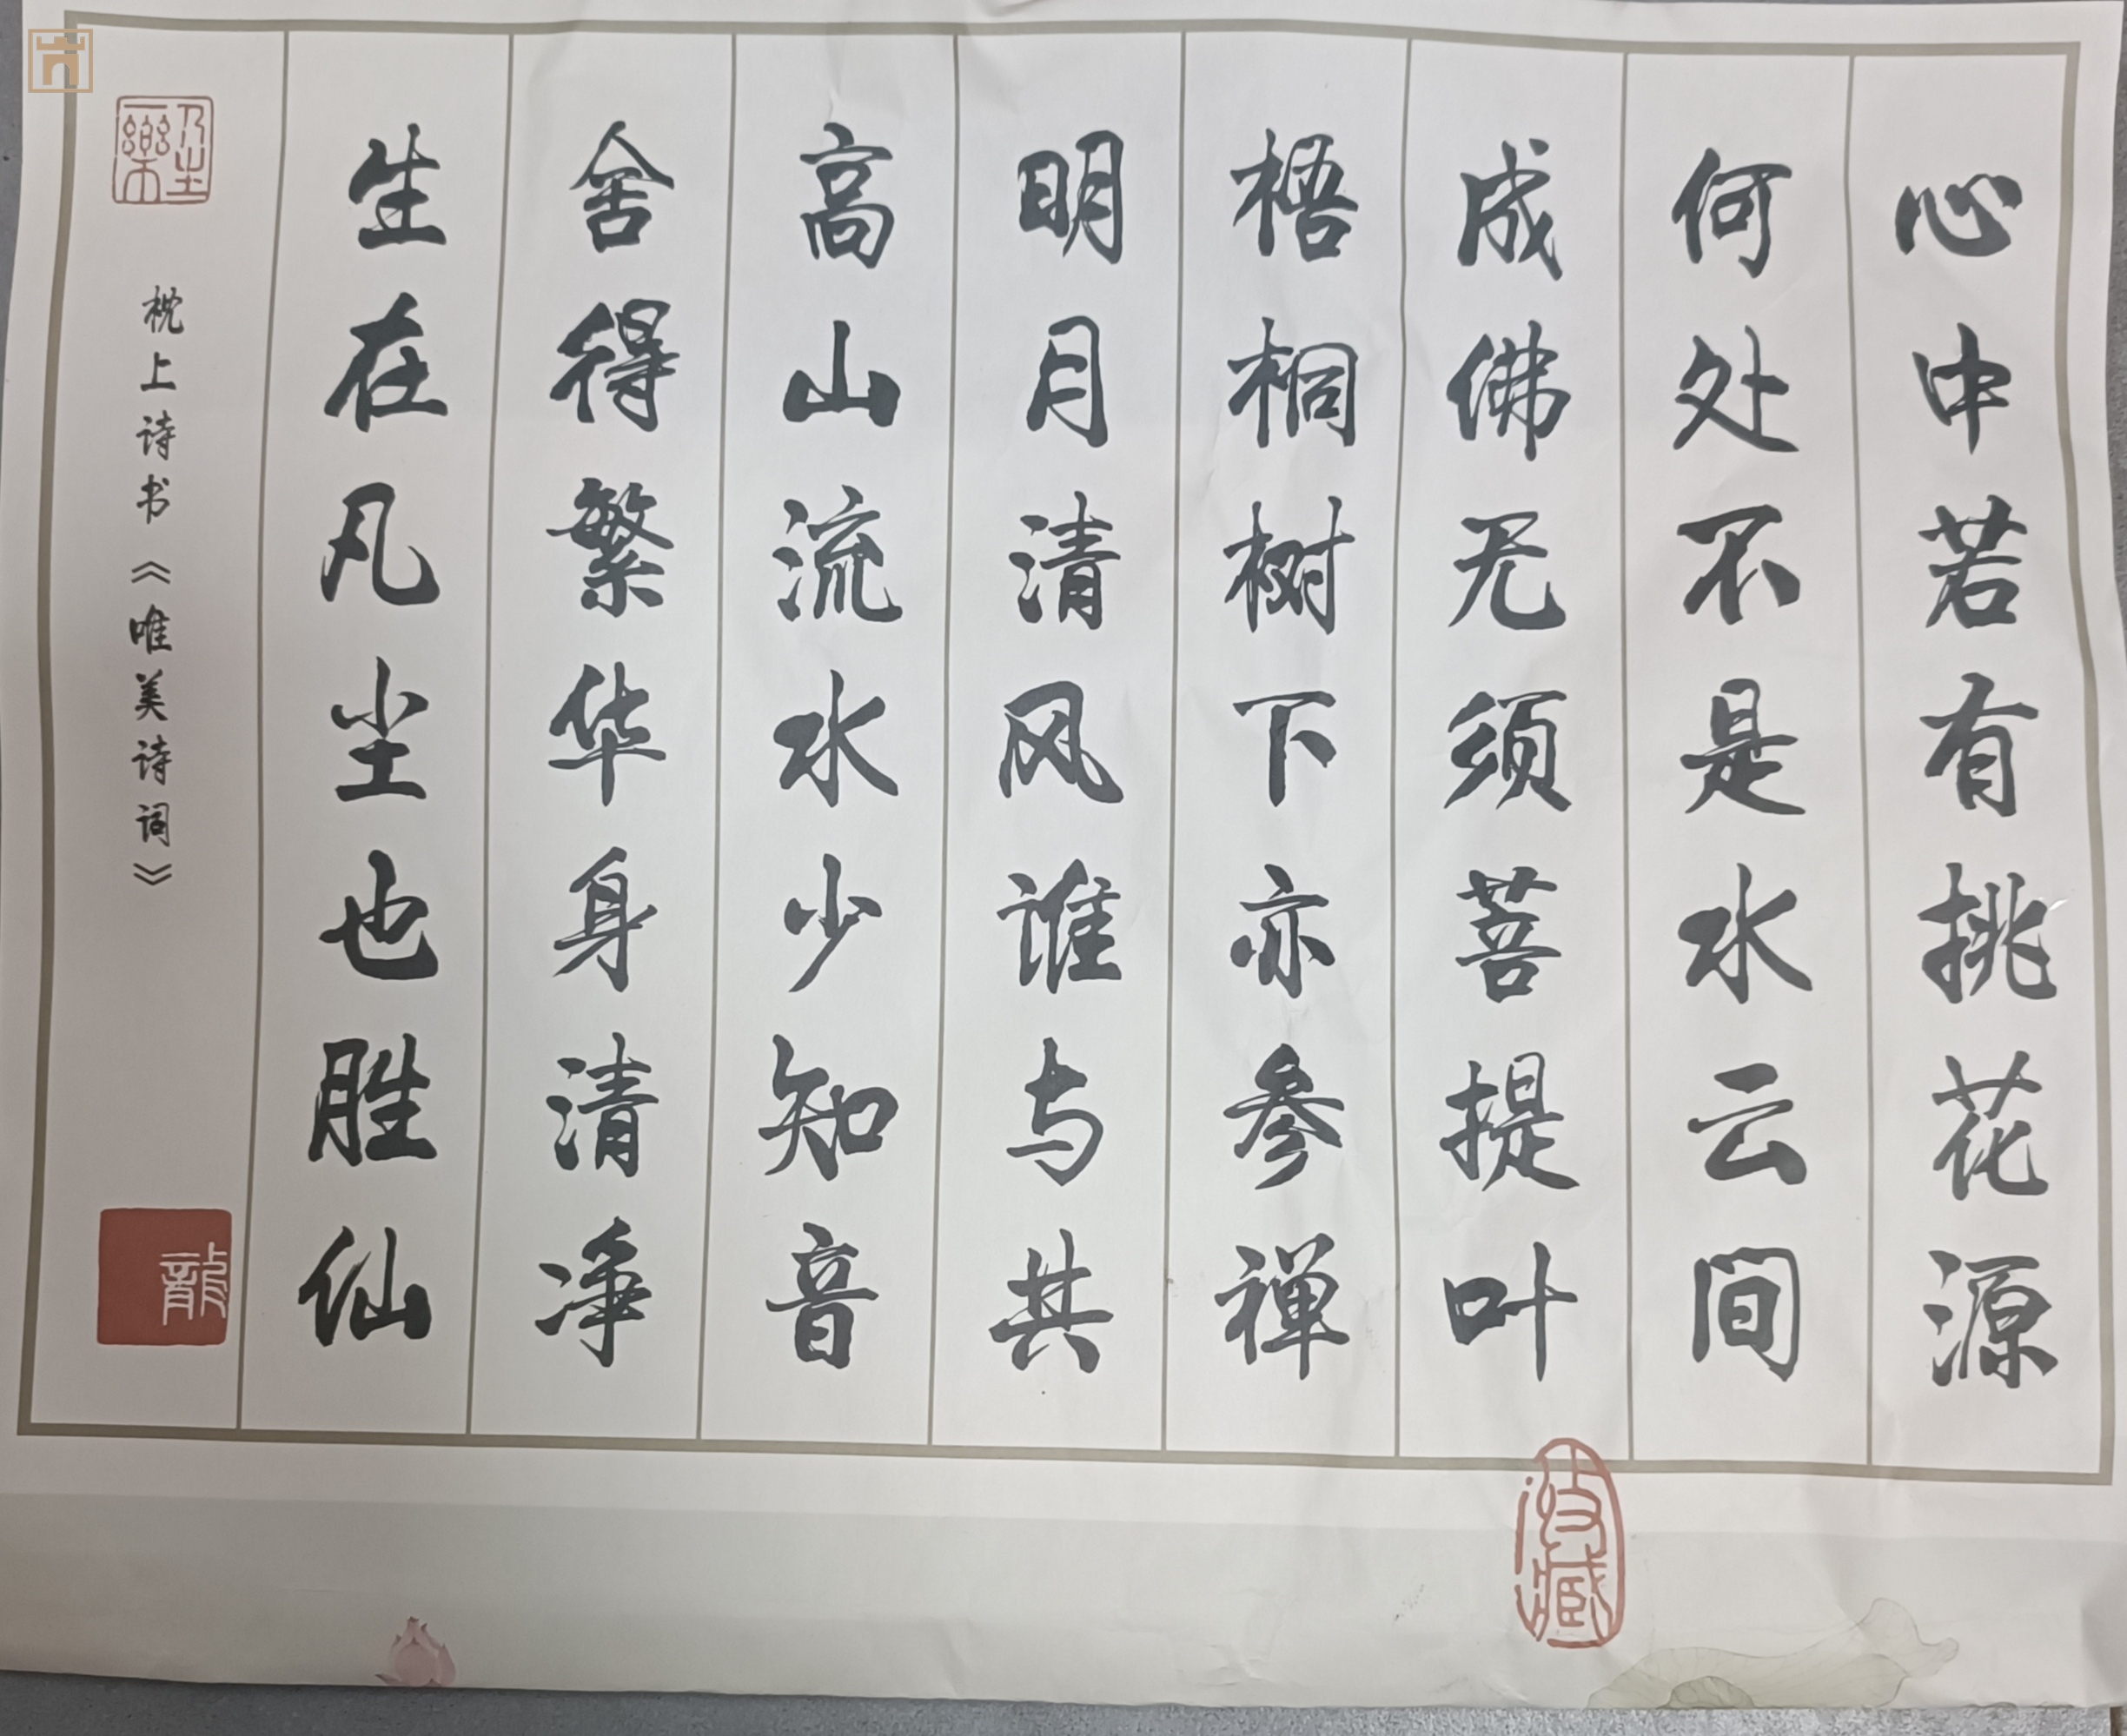 心中若有挑花源
何处不是水云间
成佛无须菩提叶
梧桐树下亦参禅
明月清风谁与共
高山流水少知音
舍得繁华身清净
生在凡尘也胜仙
枕上诗书《唯美诗词》
龍